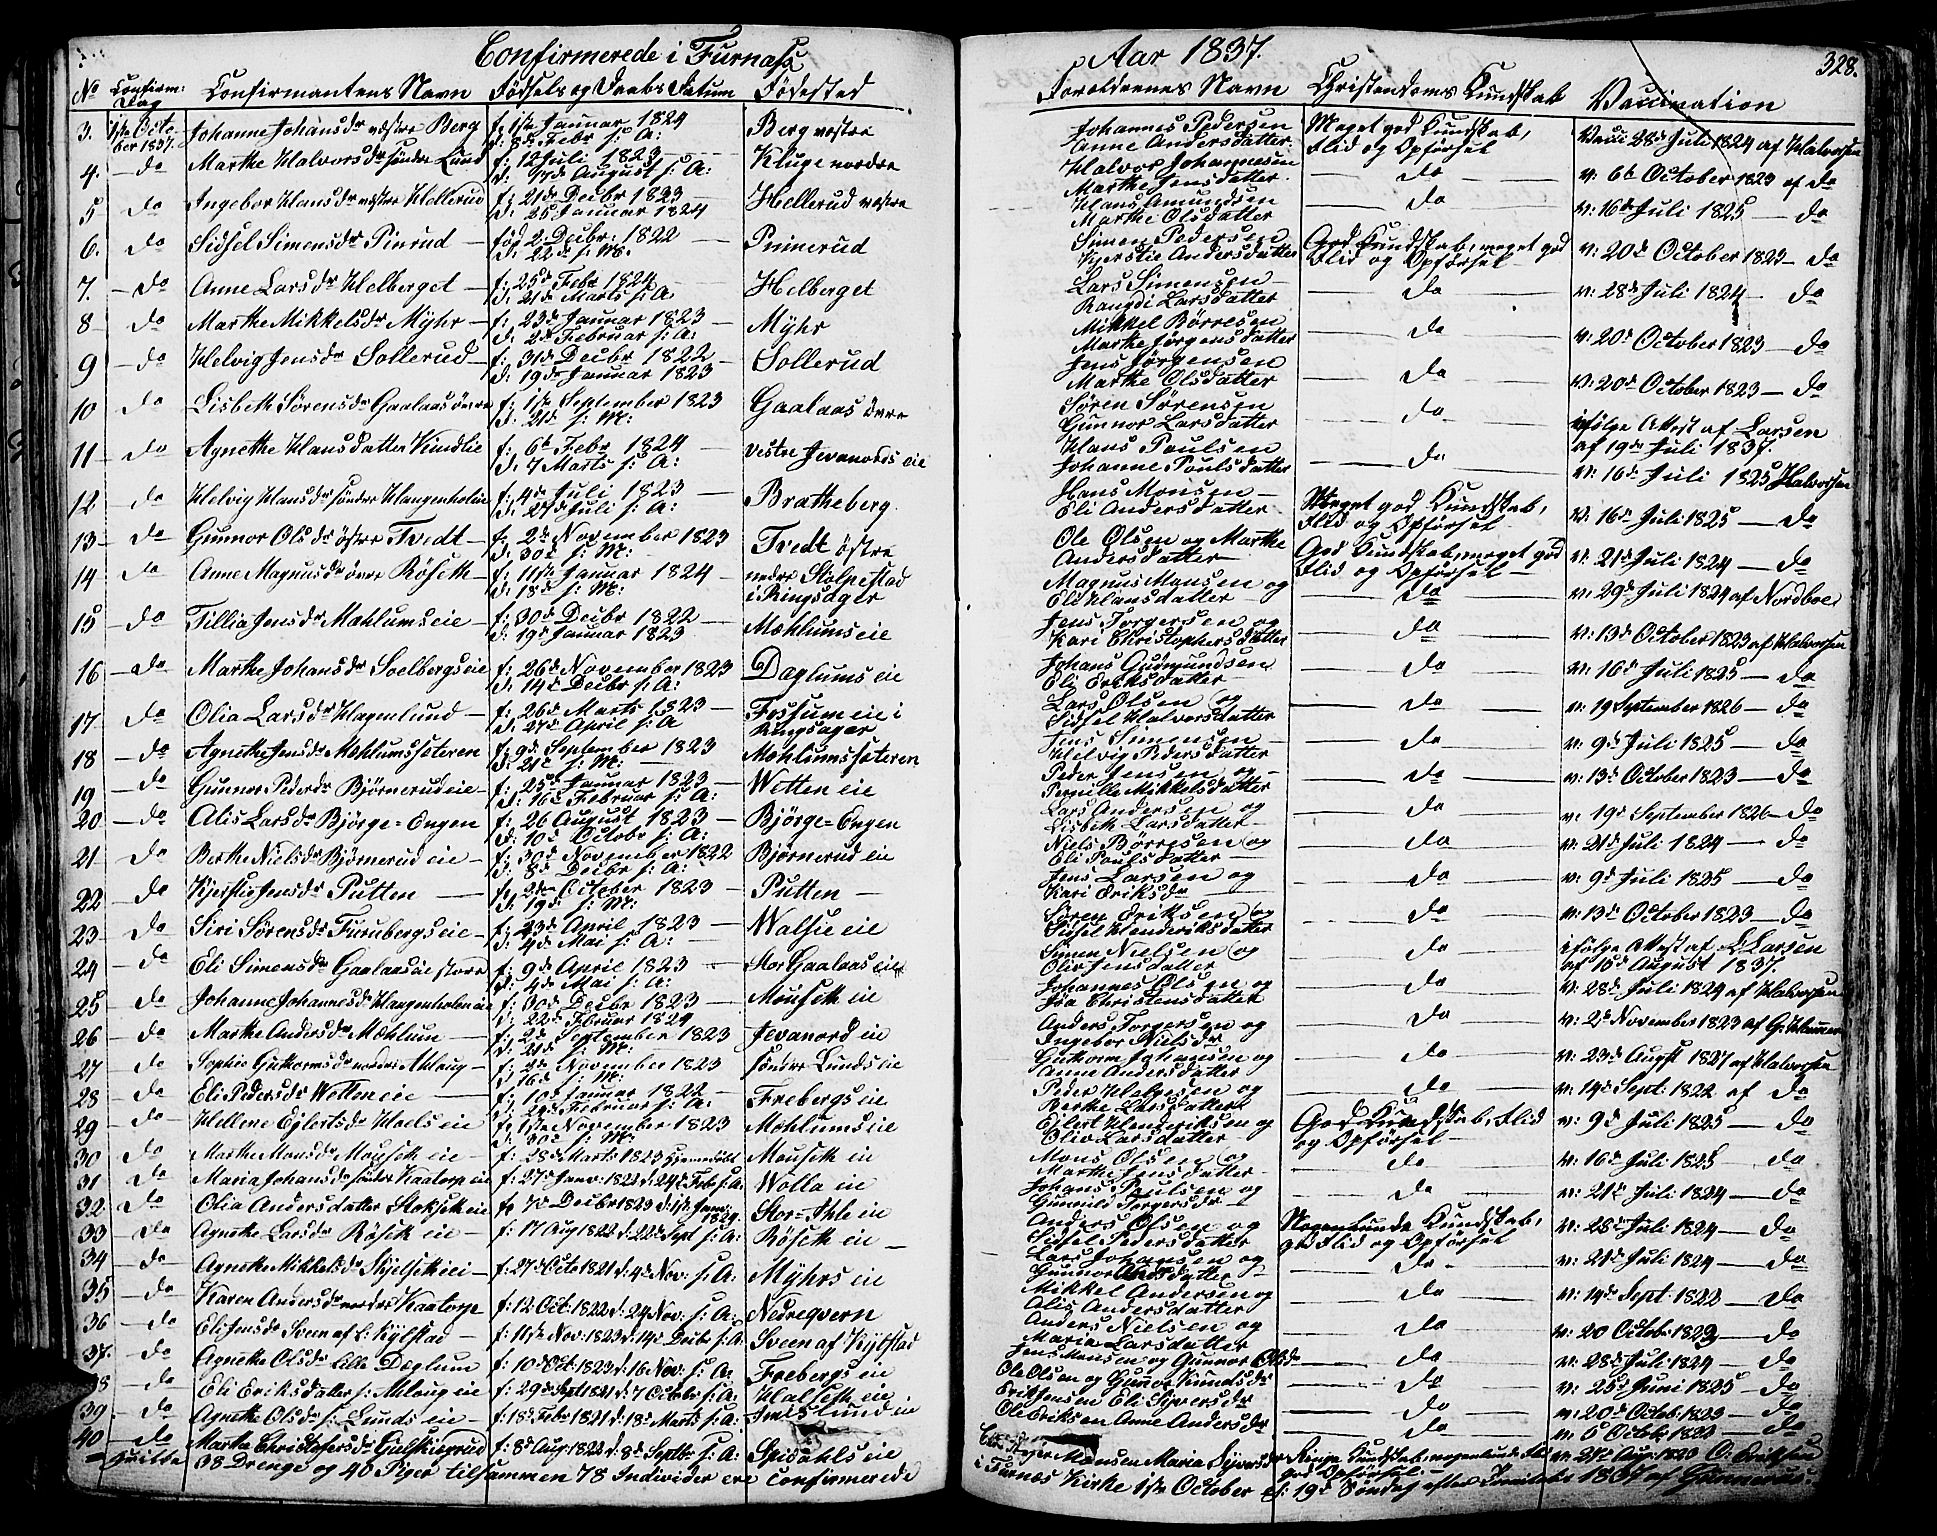 Confirmerede i Furnæs
Aar 1837.
328.
No Confirm: Dag Confirmantens Navn Fødsels og Daabs Datum Fødested
Forældrenes Navn Christendoms Kundskab Vaccination
3. 1ste October 1837. Johanne Johansdr vestre Berg f: 1ste Januar 1824 d: 8de Febr s: A: Berg vestre
Johannes Pedersen Anne Andersdatter. Meget god Kundskab, Flid og Opførsel Vacc: 28de Juli 1824 af Halvorsen
4. do Marthe Halvorsdr søndre Lund f: 12 Juli 1823 d: 17de August s: A: Kluge nordre
Halvor Johannesen Marthe Jensdatter do v: 6te October 1823 af do
5 do Ingebor Hansdr vestre Hellerud f: 21de Decbr 1823 d: 25 Januar 1824 Hellerud vestre
Hans Amundsen Marthe Olsdatter do v: 16de Juli 1825 do
6. do Sidsel Simensdr Pinrud fød 2 Decbr: 1822 d: 22de s: M: Pinnerud
Simen Pedersen Kjerstie Andersdatter God Kundskab, meget god Flid og Opførsel v: 20de October 1823 do
7. do Anne Larsdr Helberget f: 25de Febr 1824 d: 21de Marts s: A Helberget
Lars Simensen Rangdi Larsdatter do v: 28de Juli 1824 do
8 do Marthe Mikkelsdr Myhr f: 23de Januar 1823 d: 2de Februar s: A: Myhr
Mikkel Børresen Marthe Jørgensdatter do v: 20de October 1823 do
9 do Helvig Jensdr Sollerud f: 31de Decbr 1822 d: 19de Januar 1823 Sollerud
Jens Jørgensen Marthe Olsdatter do v: 20de October 1823 do
10 do Lisbeth Sørensdr Gaalaas øvre f: 1ste September 1823 d: 21de s: M: Gaalaas øvre
Søren Sørensen Gunnor Larsdatter do ifølge Attest af Larsen af 19de Juli 1837.
11 do Agnethe Hansdatter Kindlie f: 6te Febr 1824 d: 7 Marts s: A: vestre Jevanords eie
Hans Paulsen Johanne Paulsdatter do v: 16de Juli 1825 Halvorsen
12 do Helvig Hansdr søndre Hangenholen f: 4de Juli 1823 d: 27de Juli s: A: Bratheberg
Hans Monsen Eli Andersdatter Meget god Kundskab, Flid og Opførsel v: 16de Juli 1825 do
13 do Gunnor Olsdr østre Tvedt f: 2de November 1823 d: 30te s: M: Tvedt østre
Ole Olsen og Marthe Andersdatter God Kundskab, meget god Flid og Opførsel v: 21de Juli 1824 do
14 do Anne Magnusdr øvre Røseth f: 11te Januar 1824 d: 18de s: M: nedre Stolpestad i Ringsager
Magnus Monsen og Eli Hansdatter do v: 29de Juli 1824 af Nordboe
15 do Tillia Jensdr Mæhlums eie f: 30de Decbr 1822 d: 19de Januar 1823 Mæhlums eie
Jens Torgersen og Kari Christophersdatter do v: 13de October 1823 af Halvorsen
16 do Marthe Johansdr Soelbergs eie f: 26de November 1823 d: 14de Decbr s: A: Daglums eie
Johans Gudmundsen Eli Eriksdatter do v: 16de Juli 1825 do
17. do Olia Larsdr Hagenlund f: 26de Marts 1823 d: 27de April s: A Fossum eie i Ringsager
Lars Olsen og Sidsel Halvorsdatter do v: 19 September 1826 do
18 do Agnethe Jensdr Mæhlumssæteren f: 9de September 1823 d: 21de s: M: Mæhlumssæteren
Jens Simensen Helvig Pedersdatter do v: 9de Juli 1825 do
19 do Gunnor Pedersdr Bjørnerud eie f: 25de Januar 1823 d: 16de Februar s: A: Wetten eie
Peder Jensen og Pernille Mikkelsdatter do v: 13de October 1823 do
20 do Alis Larsdr Bjørge-Engen f: 26 August 1823 d: 10de Octobr s: A: Bjørge-Engen
Lars Andersen og Lisbeth Larsdatter do v: 19de September 1826 do
21 do Berthe Nielsdr Bjørnerud eie f: 30de November 1822 d: 8de Decbr s: A: Bjørnerud eie
Niels Børresen og Eli Paulsdatter do v: 21de Juli 1824 do
22 do Kjerstie Jensdr Putten f: 2den October 1823 d: 19de s: M: Putten
Jens Larsen og Kari Eriksdr do v: 9de Juli 1825 do
23 do Siri Sørensdr Furubergs eie f: 23de April 1823 d: 4de Mai s: A: Walsie eie
Søren Eriksen og Sidsel Henderiksdatter do v: 13de October 1823 do
24 do Eli Simensdr Gaalaas eie store f: 9de April 1823 d: 4de Mai s: A: Stor Gaalaas eie
Simen Nielsen og Oliv Jensdatter do ifølge Attest af L Larsen af 15de August 1837.
25 do Johanne Johannesdr Hangenholen eie f: 30de Decbr 1823 d: 22de Februar 1824 Mouseth eie
Johannes Olsen og Pia Christensdatter do v: 28de Juli 1824 af Halvorsen
26 do Marthe Andersdr Mæhlum f: 2de September 1823 d: 21de s: M: Jevanord eie
Anders Torgersen og Ingebor Nielsdr do v: 2de November 1823 af G. Hammer
27 do Sophie Guthormsdr nedre Ahlaug f: 2de November 1823 d: 16de s: M: søndre Lunds eie
Guthorm Johansen og Anne Andersdatter do v: 23de Augst 1827 af Halvorsen
28 do Eli Pedersdr Wetten eie f: 10de Januar 1822 d: 24de Februar s: A: Frebergs eie
Peder Helgesen og Berthe Larsdatter do v: 14de Sept: 1822 af do
29 do Hellene Eglertsdr Hoels eie f: 1ste November 1823 d: 30te s: M: Mæhlums eie
Eglert Henderiksen og Oliv Larsdatter God Kundskab, Flid og Opførsel v: 9de Juli 1825 do
30 do Marthe Monsdr Mouseth eie f: 28de Marts 1823 hjemmedøbt Mouseth eie
Mons Olsen og Marthe Jensdatter do v: 16de Juli 1825 do
31 do Maria Johansdr søndr Kaatorp eie f: 27de Janr: 1822 d: 24de Febr s: A: Wolla eie
Johans Paulsen og Gunnild Torgersdr do v: 21de Juli 1824 do
32 do Olia Andersdatter Stokset eie f: 7de Decbr 1823 d: 1ste Janr: 1824 Stor-Ihle eie
Anders Olsen og Sidsel Pedersdatter Nogenlunde Kundskab, god Flid og Opførsel v: 28de Juli 1824 do
33 do Agnethe Larsdr Røseth eie f: 17 Aug 1822 d: 22de Sept s: A: Røseth eie
Lars Johansen og Gunnor datter do v: 21de Juli 1824 do
34 do Agnethe Mikkelsdr Skjelseth eie f: 27de Octo 1821 d: 4de Nov: s: A: Myhrs eie
Mikkel Andersen og Alis Andersdatter do v: 14de Sept: 1822 do
35 do Karen Andersdr nordre Kaatorp f: 12 Oct: 1822 d: 24 Nov: s: A: Nedregvern
Anders Nielsen og Maria Larsdatter do v: 20 Octobr 1823 do
36 do Eli Jensdr Sveen af L. Kylstad f: 11te Nov: 1823 d: 14de Decbr s: A: Sveen af Kylstad
Jens Monsen og Gunnor Olsdr do v: 28de Juli 1824 do
37. do Agnethe Olsdr Lille Dæglum f: 10de Oct: 1823 d: 16 Nov: s: A: Frebergs eie
Ole Olsen og Gunor Knudsdr do v: 25de Juni 1825 do
38 do Eli Eriksdatter s: Ahlaug eie f: 29de Sept 1821 d: 7 Octobr s: A: Halseth eie
Erik Jensen Eli Sjversdr do v: 20de Octob: 1823 do
39 do Agnethe Olsdr s: Lunds eie f: 18de Febr 1821 d: 18de Marts s: A: Jmislund eie
Ole Eriksen Anne Andersdr do v: 6 Octob 1823 do
40 do Marthe Christofersdr Gjelskisgrud f: 8de Aug: 1822 d: 8de Septbr s: A: Spidahls eie
Monsen Maria Sjversdr Ringe Kundskab, nogenlunde Flid god Opførsel v: 21de Aug: 1823 O: Eriksen
38 Drenge og 40 Piger tilsammen 78 Individer ere confirmerede
i Furnes Kirke 1ste October s: 19de Søndag efter Trinitatis 1837 af